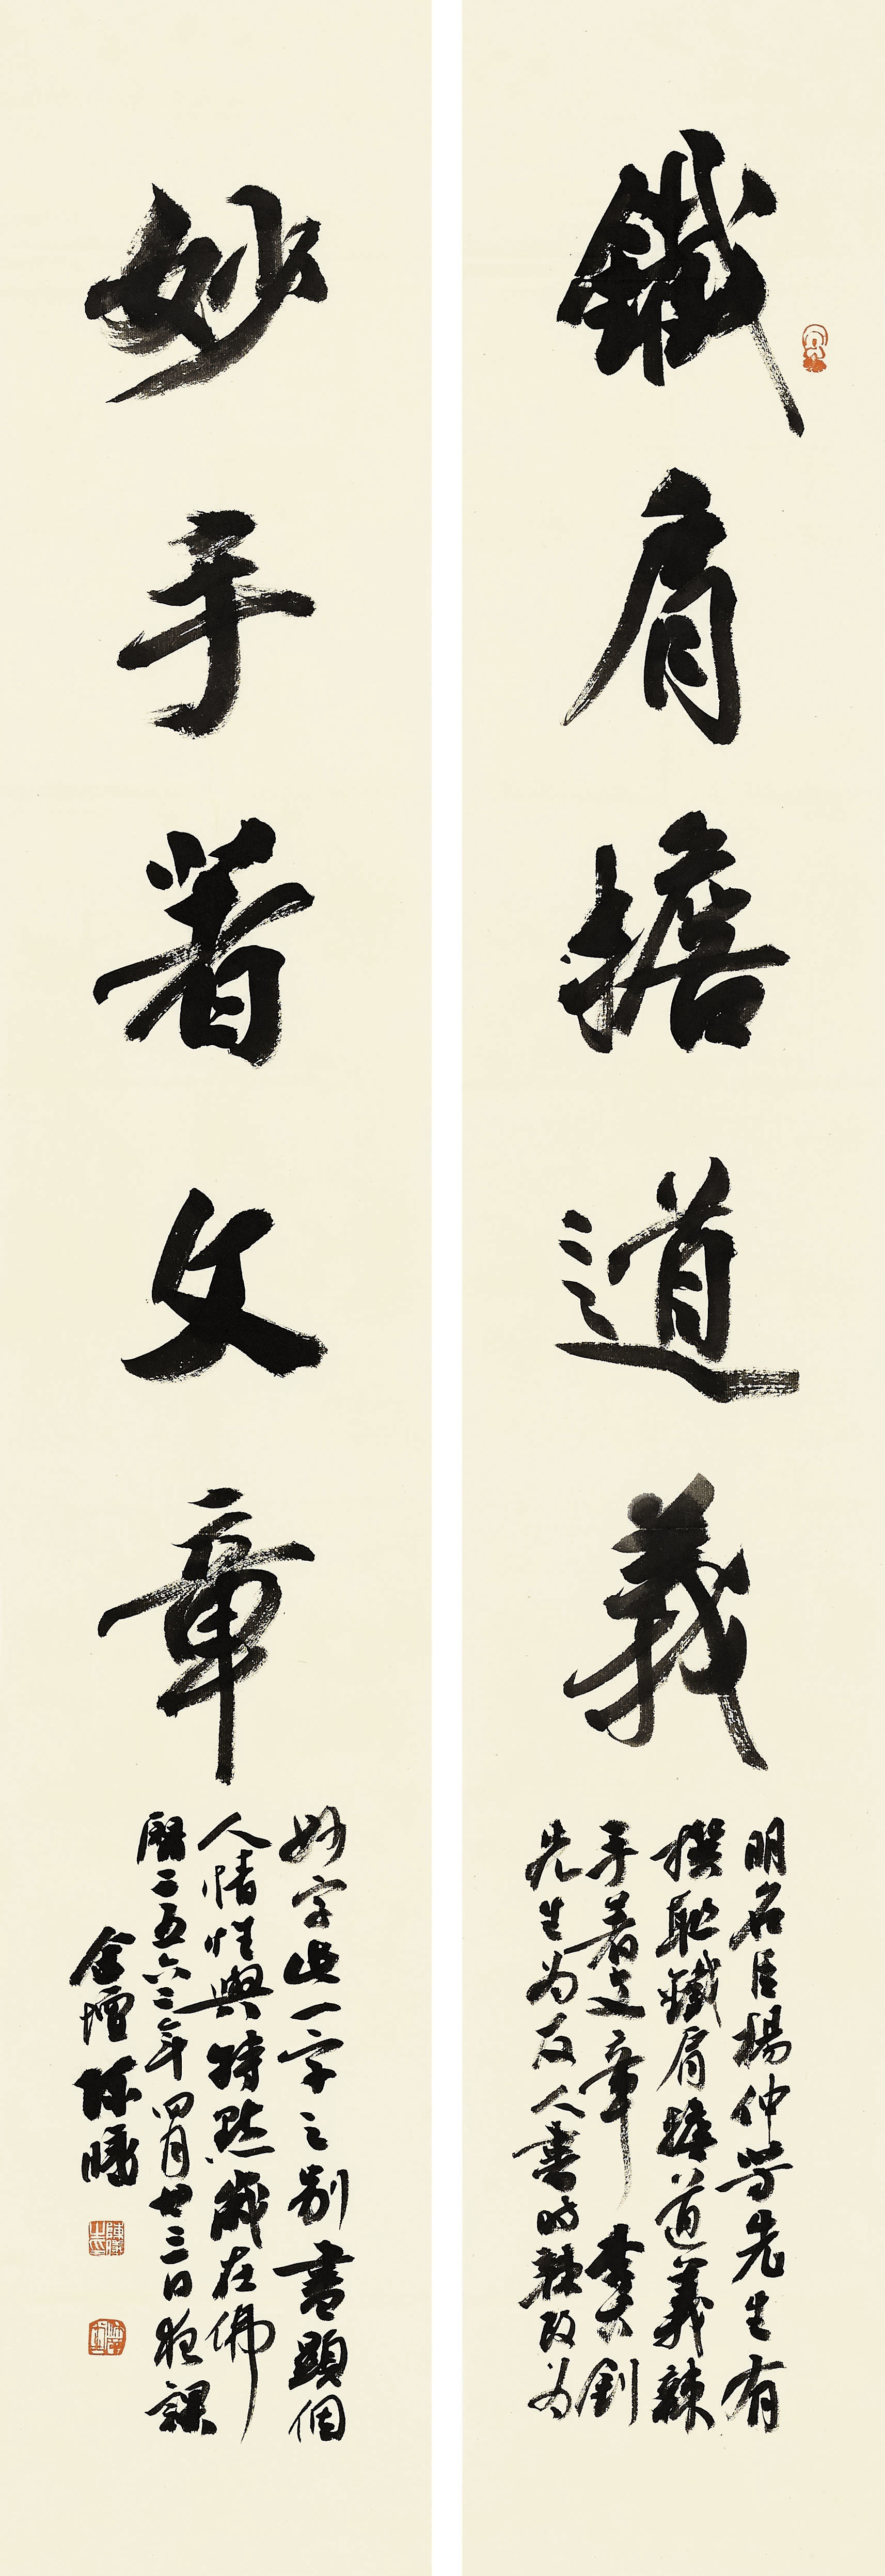 鐵肩擔道義
明名臣楊仲芳先生有
撰聯鐵肩擔道義辣
手著文章 李大釗
先生為友人書時輒改為
妙手著文章
妙字此一字之別書顯個
人情性與特點歲在佛
曆二五六二年四月廿三日夜課
金壇陳曦